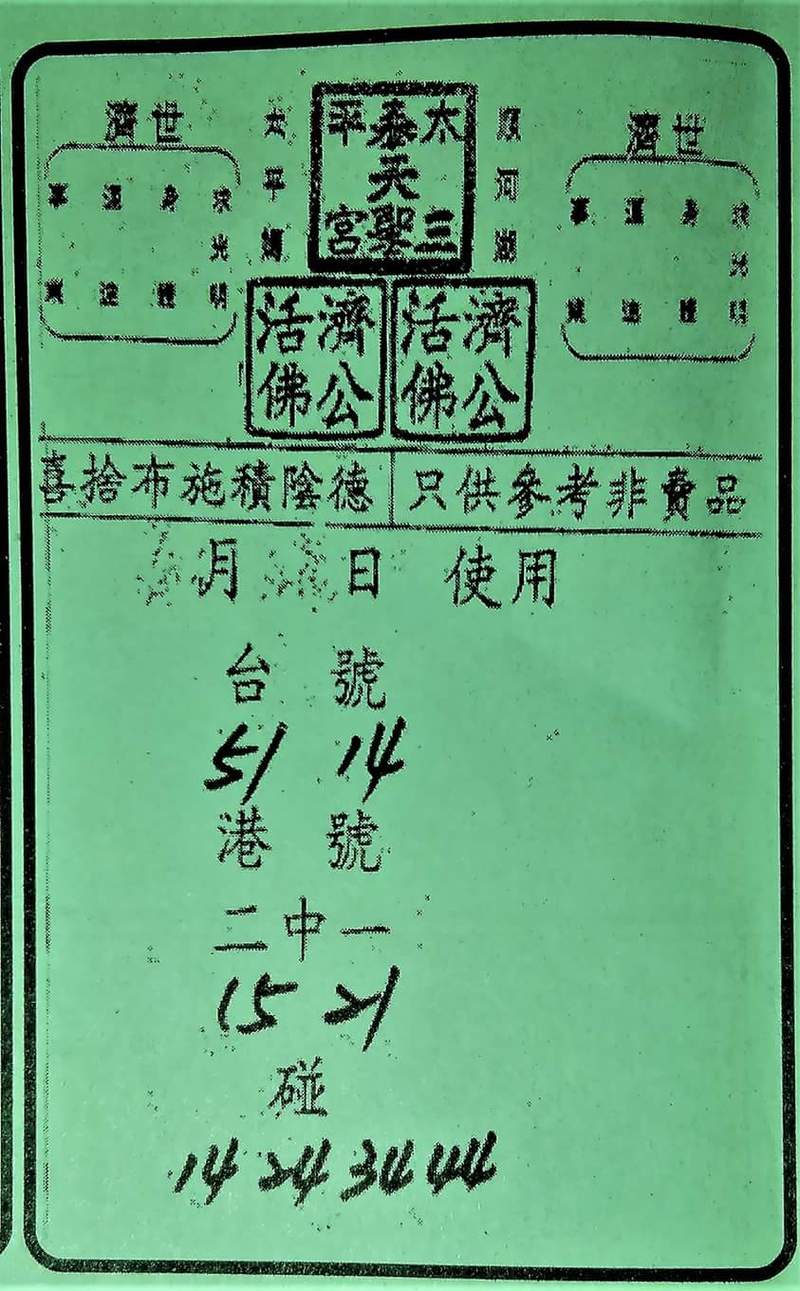 濟世
太平
泰天
三聖宮
濟世
太平
河
求光明
身
求光明
身
濟公
活佛
濟公
活佛
喜捨布施積陰德
只供參考非賣品
月 日 使用
台 號
51 14
港 號
二中一
15 21
碰
14 24 34 44